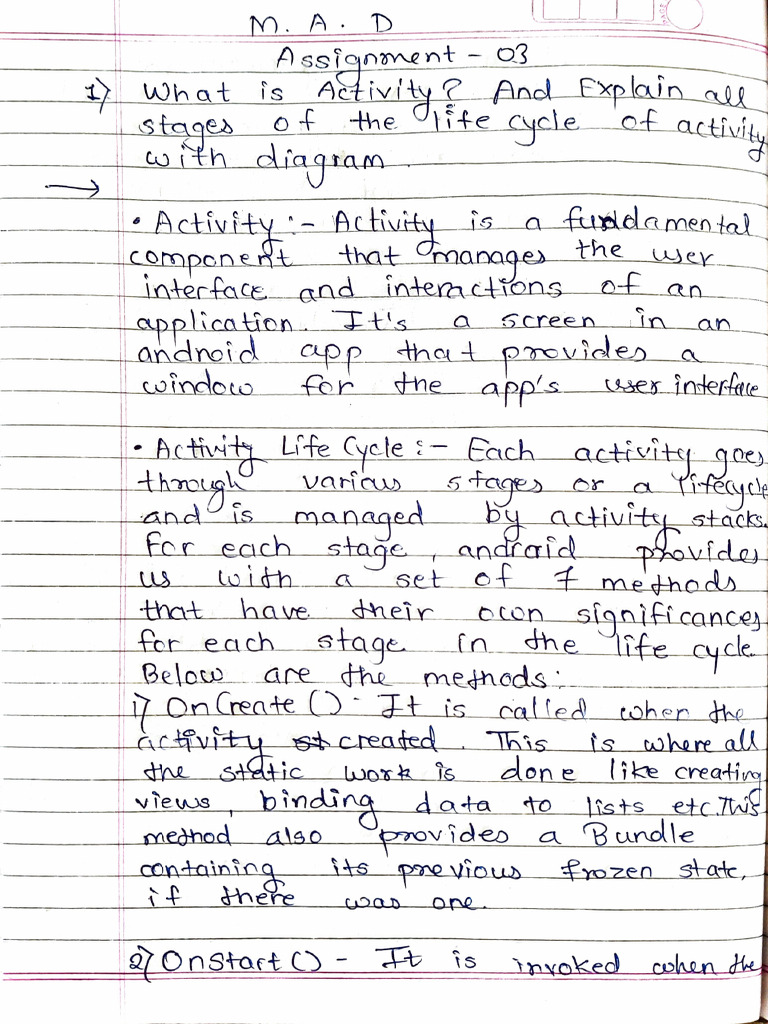 M. A. D
Assignment - 03
1) What is Activity? And Explain all
stages of the life cycle of activity
with diagram.
→
• Activity :- Activity is a fundamental
component that manages the user
interface and interactions of an
application. It's a screen in an
android app that provides a
window for the app's user interface
• Activity Life Cycle :- Each activity goes
through various stages or a lifecycle
and is managed by activity stacks.
For each stage, android provides
us with a set of 7 methods
that have their own significances
for each stage in the life cycle
Below are the methods:
1) OnCreate () - It is called when the
activity created. This is where all
the static work is done like creating
views, binding data to lists etc. This
method also provides a Bundle
containing its previous frozen state,
if there was one.
2) OnStart () - It is invoked when the